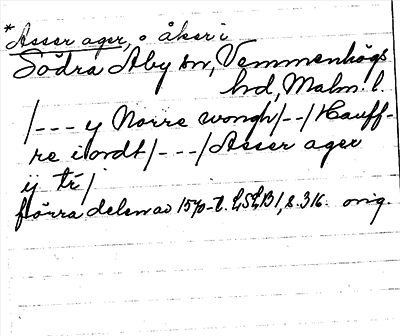 *Asser ager, o åker i
Södra Åby sn, Vemmenhögs
hd, Malm. l.
/--- y Norre wongh /--/ Hauff-
re iordt /---/ Asser ager
ij tr /
förra delen av 1570-t. LSLB1, s. 316. orig.